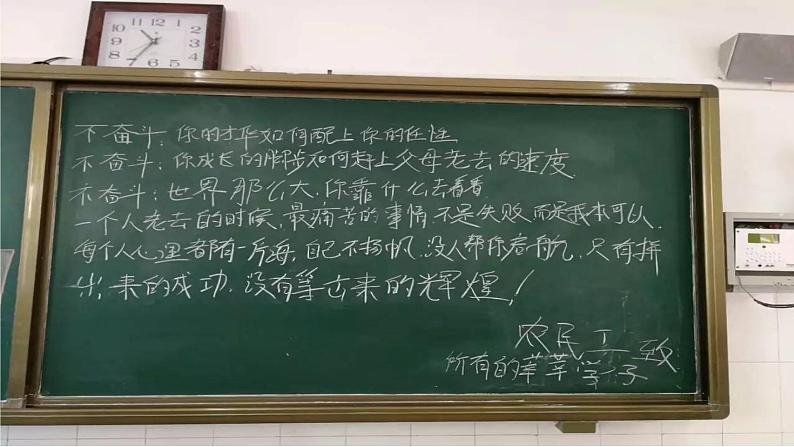 不奋斗：你的才华如何配上你的任性
不奋斗：你成长的脚步如何赶上父母老去的速度
不奋斗：世界那么大，你靠什么去看看
一个人老去的时候，最痛苦的事情，不是失败，而是我本可以.
每个人心里都有一片海，自己不扬帆，没人帮你启航，只有拼
出来的成功，没有等出来的辉煌！
农民工 致
所有的莘莘学子